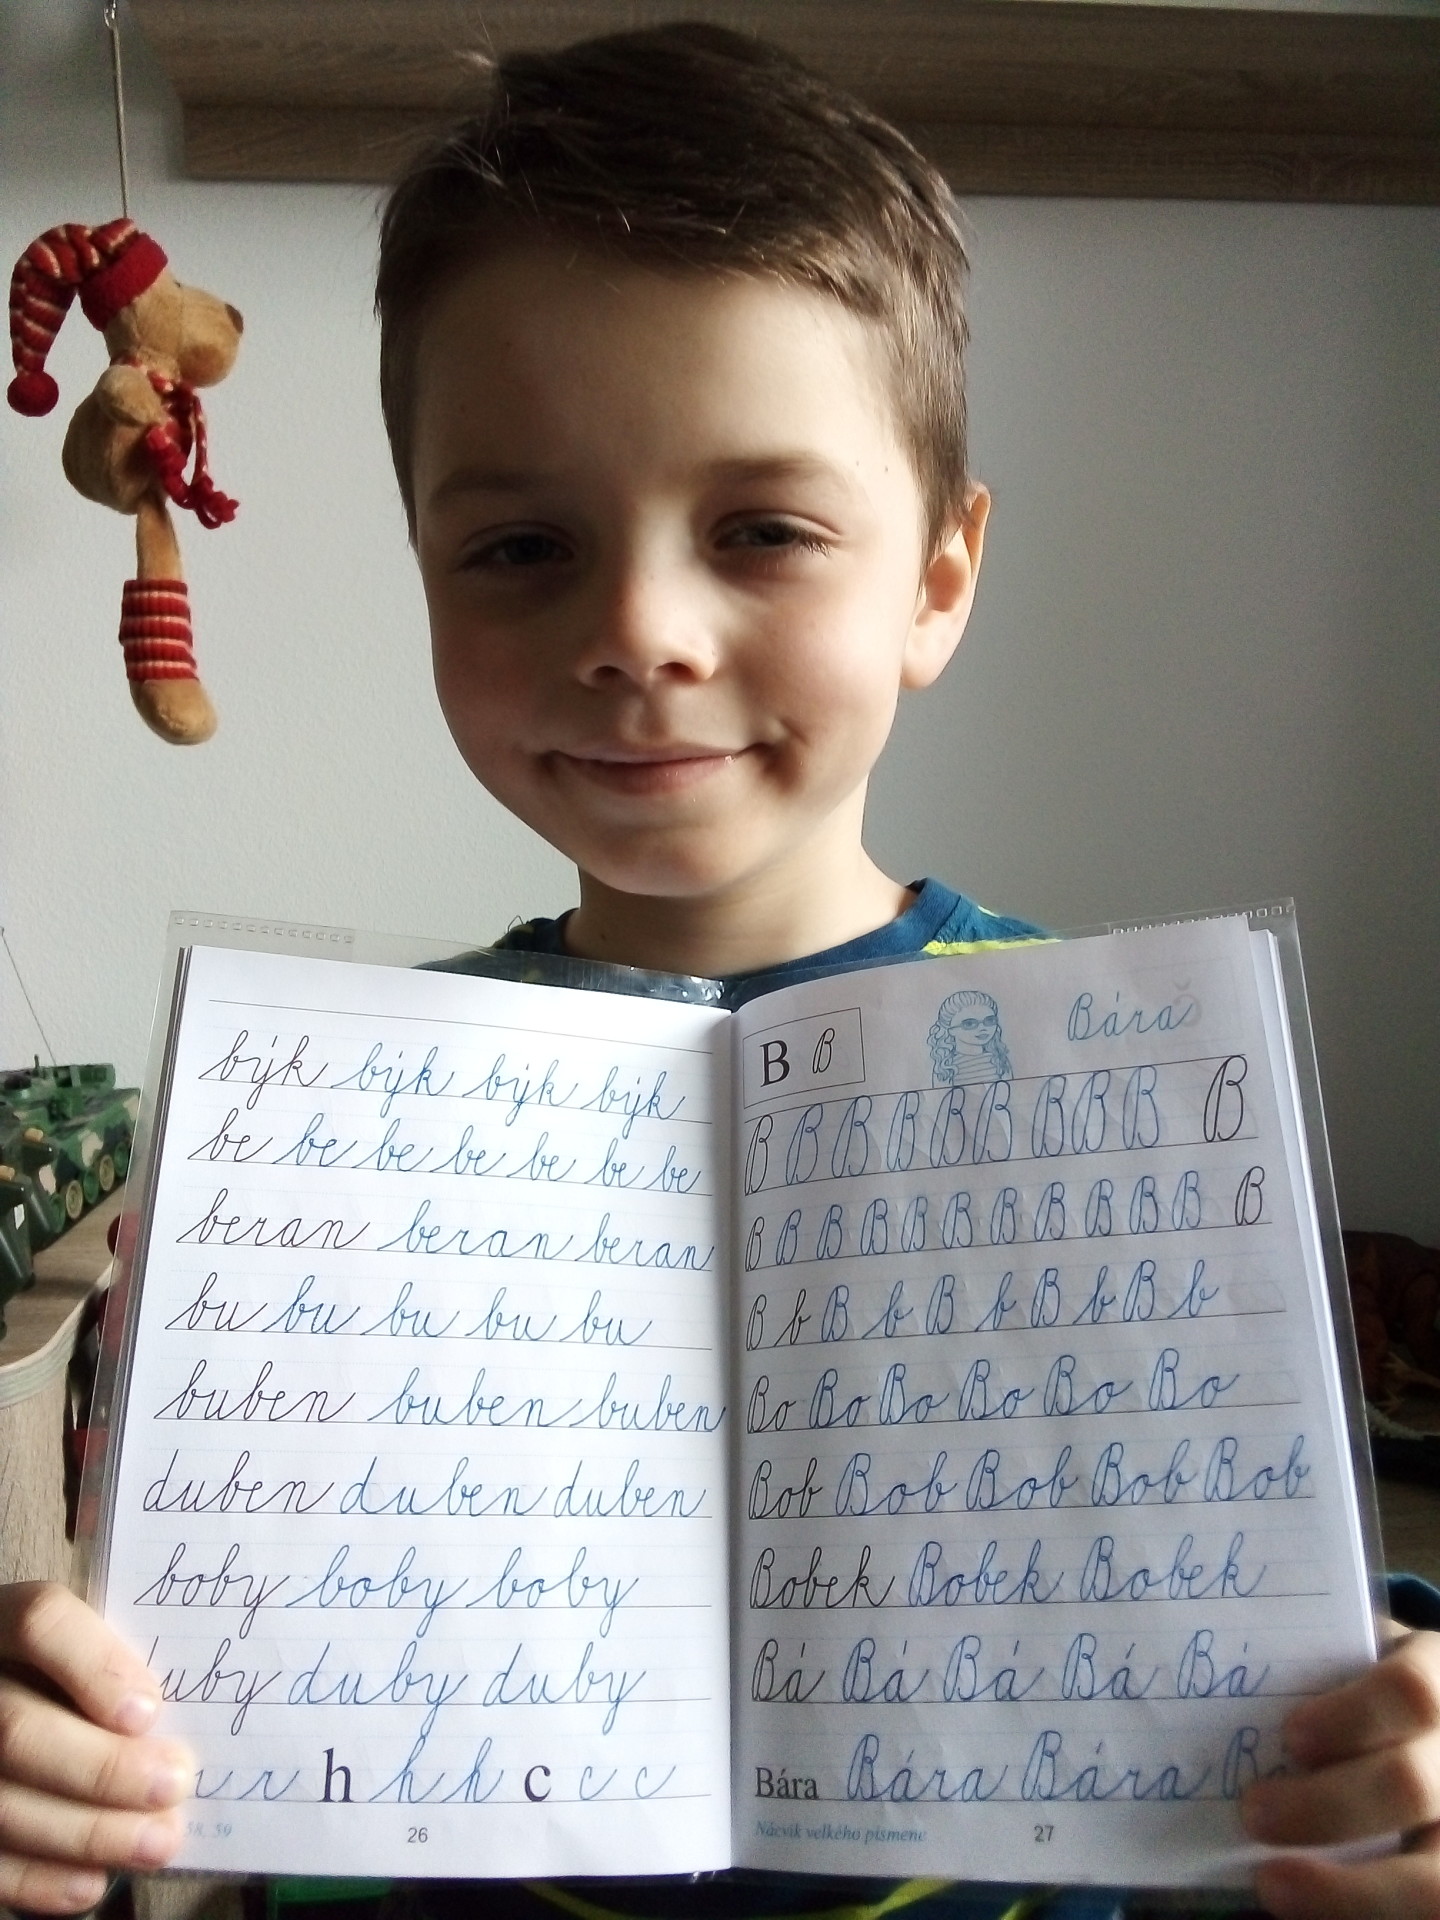 býk býk býk býk
be be be be be be be
beran beran beran
bu bu bu bu bu
buben buben buben
duben duben duben
boby boby boby
duby duby duby
r r h h h c c c
58, 59
26
B B
Bára
B B B B B B B B B B
B B B B B B B B B B B B
B b B b B b B b B b
Bo Bo Bo Bo Bo Bo
Bob Bob Bob Bob Bob
Bobek Bobek Bobek
Bá Bá Bá Bá Bá
Bára Bára Bára
Nácvik velkého písmene
27